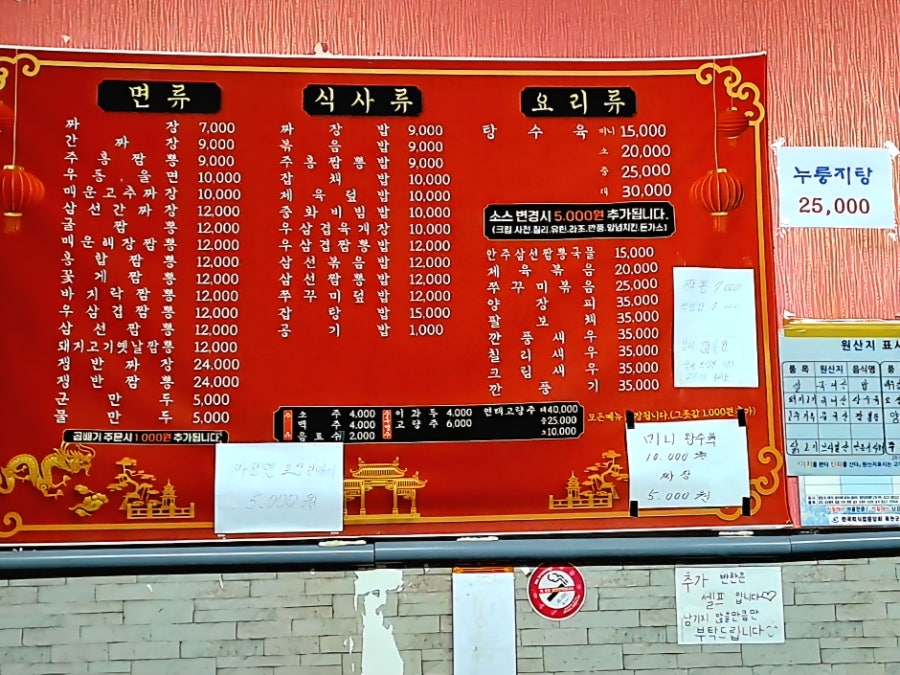 면류
짜장 7,000
간짜장 9,000
주홍짬뽕 9,000
우동.울면 10,000
매운고추짜장 10,000
삼선간짜장 12,000
굴짬뽕 12,000
매운해장짬뽕 12,000
홍합짬뽕 12,000
꽃게짬뽕 12,000
바지락짬뽕 12,000
우삼겹짬뽕 12,000
삼선짬뽕 12,000
돼지고기옛날짬뽕 12,000
쟁반짜장 24,000
쟁반짬뽕 24,000
군만두 5,000
물만두 5,000
곱빼기 주문시 1,000원 추가됩니다.
식사류
짜장밥 9,000
볶음밥 9,000
주홍짬뽕밥 9,000
잡채밥 10,000
제육덮밥 10,000
중화비빔밥 10,000
우삼겹육개장 10,000
우삼겹짬뽕밥 12,000
삼선볶음밥 12,000
삼선짬뽕밥 12,000
쭈꾸미덮밥 12,000
잡탕밥 15,000
공기밥 1,000
요리류
탕수육 미니 15,000
소 20,000
중 25,000
대 30,000
소스 변경시 5,000원 추가됩니다.
(크림,사천,칠리,유린,라조,깐풍,양념치킨,돈가스)
안주삼선짬뽕국물 15,000
제육볶음 20,000
쭈꾸미볶음 25,000
양장피 35,000
팔보채 35,000
깐풍새우 35,000
칠리새우 35,000
크림새우 35,000
깐풍기 35,000
소주 4,000
맥주 4,000
음료수 2,000
이과두 4,000
고량주 6,000
연태고량주 대40,000
중25,000
소10,000
모든메뉴
(그릇값 1,000원
5,000원
미니 탕수육
10,000원
짜장
5,000원
누룽지탕
25,000
원산지 표시
품목 원산지 음식명
추가 반찬은
셀프 입니다♡
남기지 않을만큼만
부탁드립니다